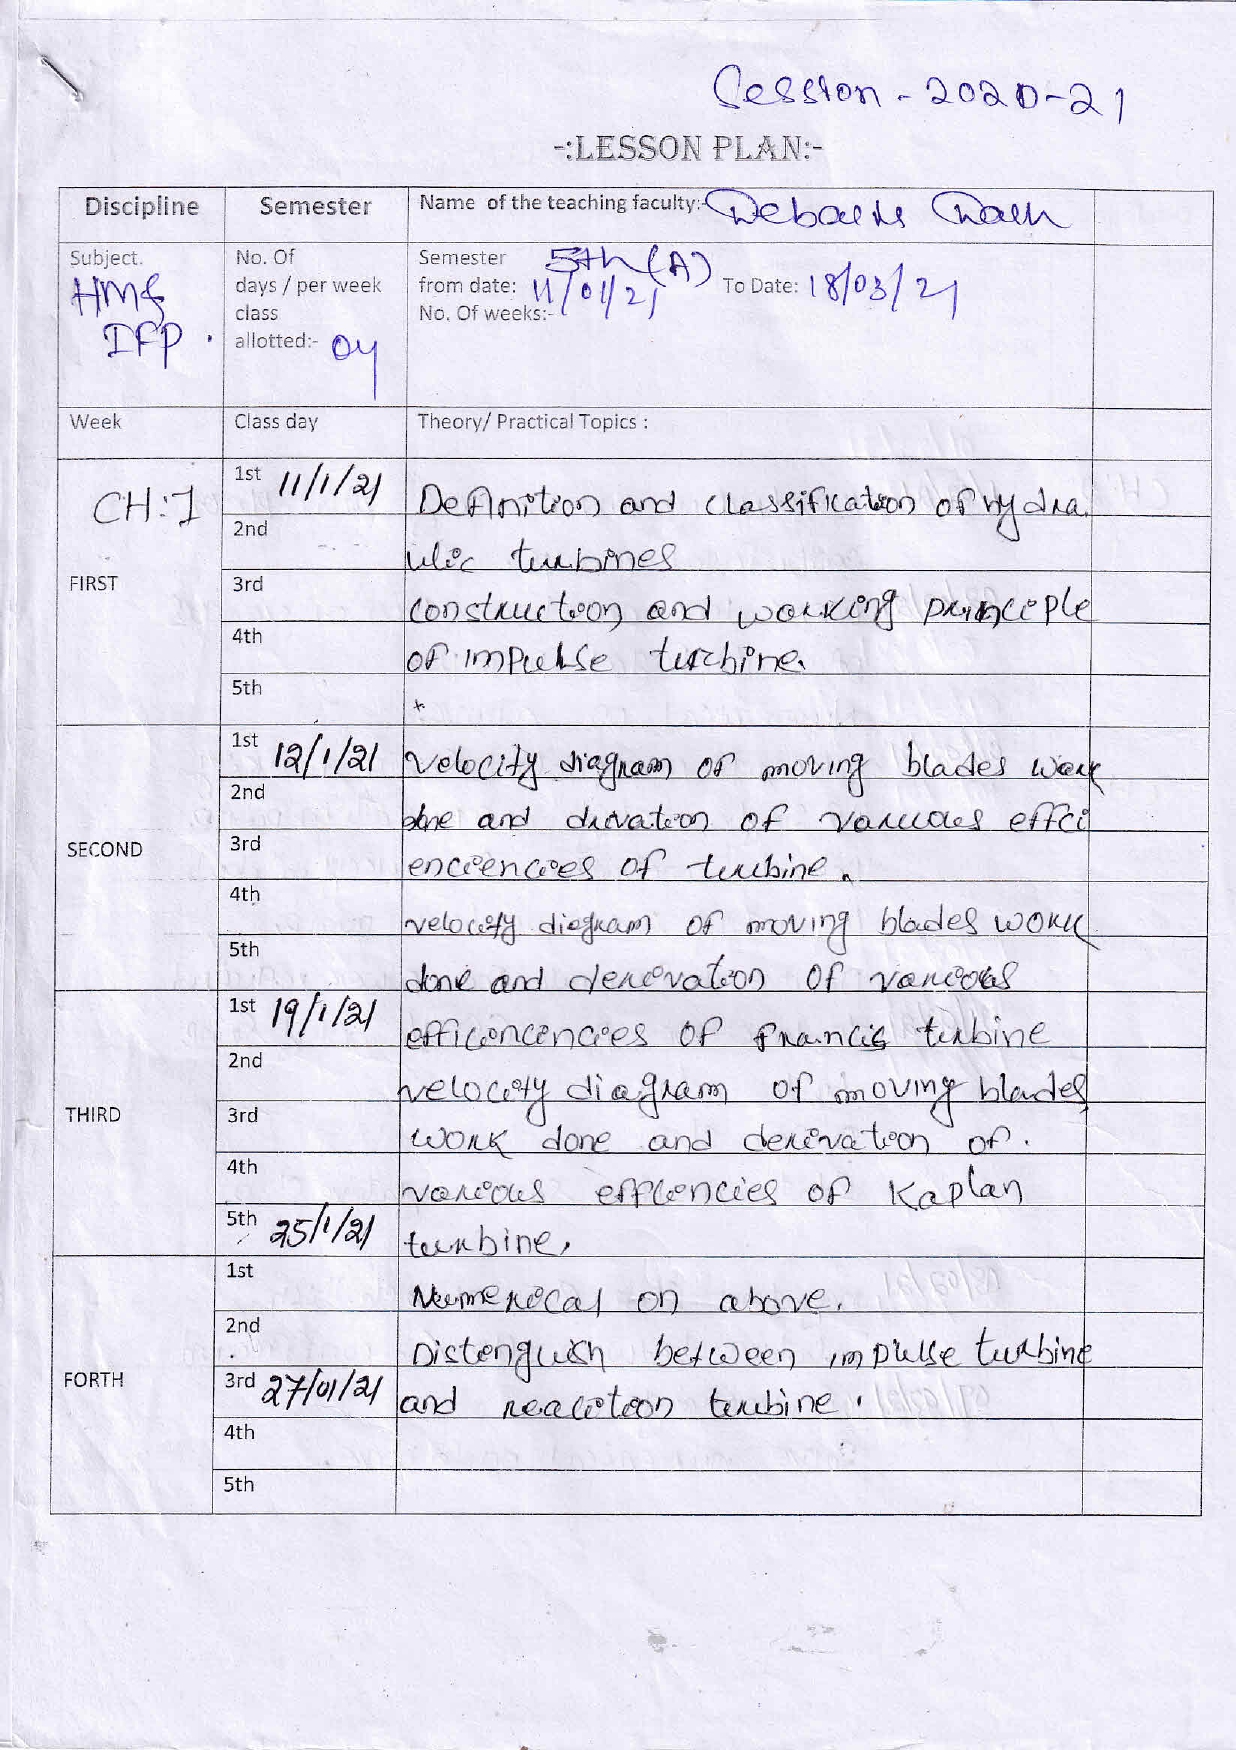 Session - 2020-21
-:LESSON PLAN:-
Discipline
Semester
Name of the teaching faculty:- Debasis Dash
Subject.
HM&
IFP.
No. Of
days / per week
class
allotted:- 04
Semester 5th (A)
from date: 11/01/21 To Date: 18/03/21
No. Of weeks:-
Week
Class day
Theory/ Practical Topics :
CH:1
FIRST
1st 11/1/21 Definition and classification of hydra
2nd ulic turbines
3rd construction and working principle
4th of impulse turbine.
5th
SECOND
1st 12/1/21 Velocity diagram of moving blades work
2nd done and drivation of various effci
3rd enciencies of turbine.
4th velocity diagram of moving blades work
5th done and derivation of various
THIRD
1st 19/1/21 efficoncencies of francis turbine
2nd velocity diagram of moving blades
3rd work done and derivation of.
4th various effciencies of Kaplan
5th 25/1/21 turbine.
FORTH
1st Numerical on above.
2nd Distenguish between impulse turbine
3rd 27/01/21 and reaction turbine.
4th
5th